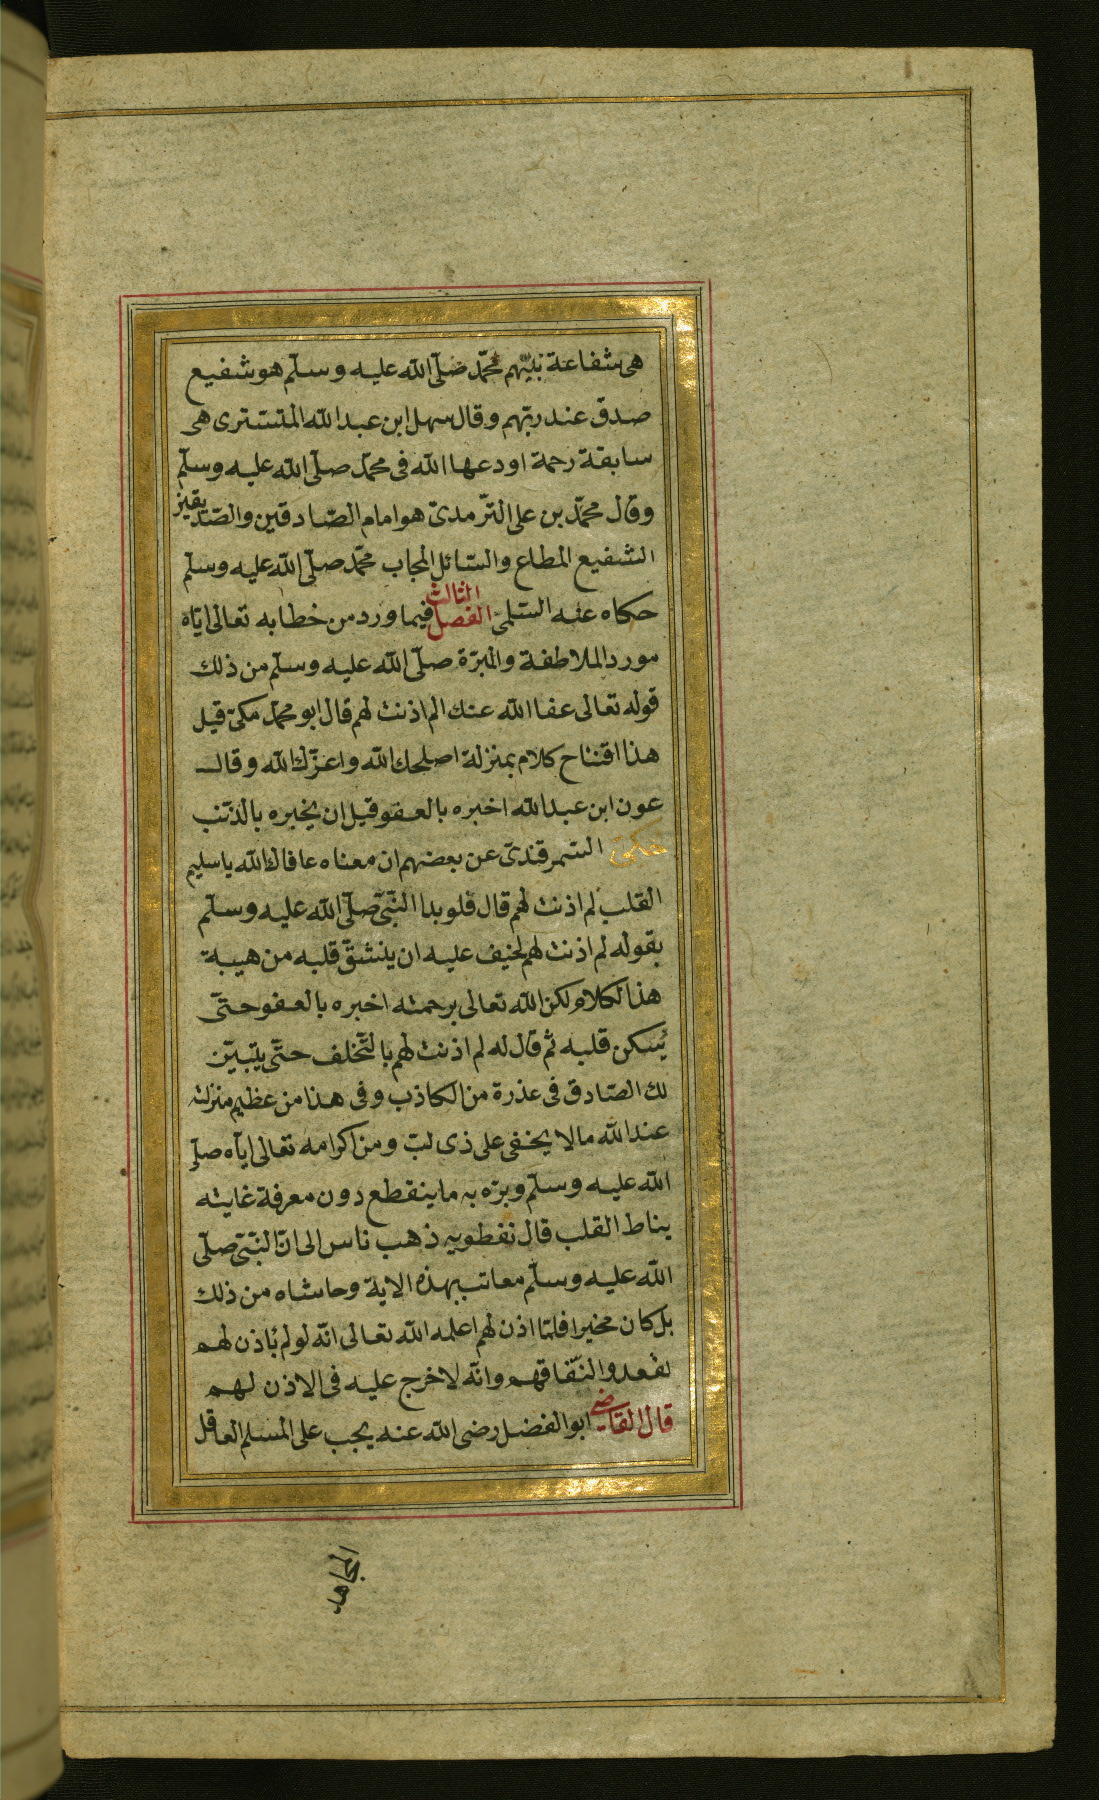 هى شفاعة نبيّهم محمّد صلّى الله عليه وسلّم هو شفيع
صدق عند ربّهم وقال سهل ابن عبد الله التسترى هى
سابقة رحمة اودعها الله فى محمّد صلّى الله عليه وسلّم
وقال محمّد بن على التّرمدىّ هو امام الصّادقين والصّديقين
الشفيع المطاع والسّائل المجاب محمّد صلّى الله عليه وسلّم
حكاه عنه السّلمى الفصل الثالث فيما ورد من خطابه تعالى ايّاه
مورد الملاطفة والمبرّة صلّى الله عليه وسلّم من ذلك
قوله تعالى عفا الله عنك الم اذنت لهم قال ابو محمّد مكىّ قيل
هذا افتتاح كلام بمنزلة اصلحك الله واعزّك الله وقال
عون ابن عبد الله اخبره بالعفو قبل ان يخبره بالذّنب
حكىٰ السّمرقندىّ عن بعضهم ان معناه عافاك الله يا سليم
القلب لم اذنت لهم قال فلو بدا النّبىّ صلّى الله عليه وسلّم
بقوله لم اذنت لهم لخيف عليه ان ينشقّ قلبه من هيبة
هذا الكلام لكن الله تعالى برحمته اخبره بالعفو حتّى
يُسكن قلبه ثم قال له لم اذنت لهم بالتّخلف حتّى يتبيّن
لك الصّادق فى عذرة من الكاذب وفى هذا من عظيم منزلته
عند الله ما لا يخفى على ذى لبّ ومن اكرامه تعالى ايّاه صلّى
الله عليه وسلّم وبرّه به ما ينقطع دون معرفة غايته
يناط القلب قال نفطويه ذهب ناس الى انّ النّبىّ صلّى
الله عليه وسلّم معاتب بهذه الاية وحاشاه من ذلك
بل كان مخيرا فلمّا اذن لهم اعلمه الله تعالى انّه لو لم ياذن لهم
لقعدوا لنفاقهم وانّه لا خرج عليه فى الاذن لهم
قال القاضى ابو الفضل رضى الله عنه يجب على المسلم العاقل
المجاهد